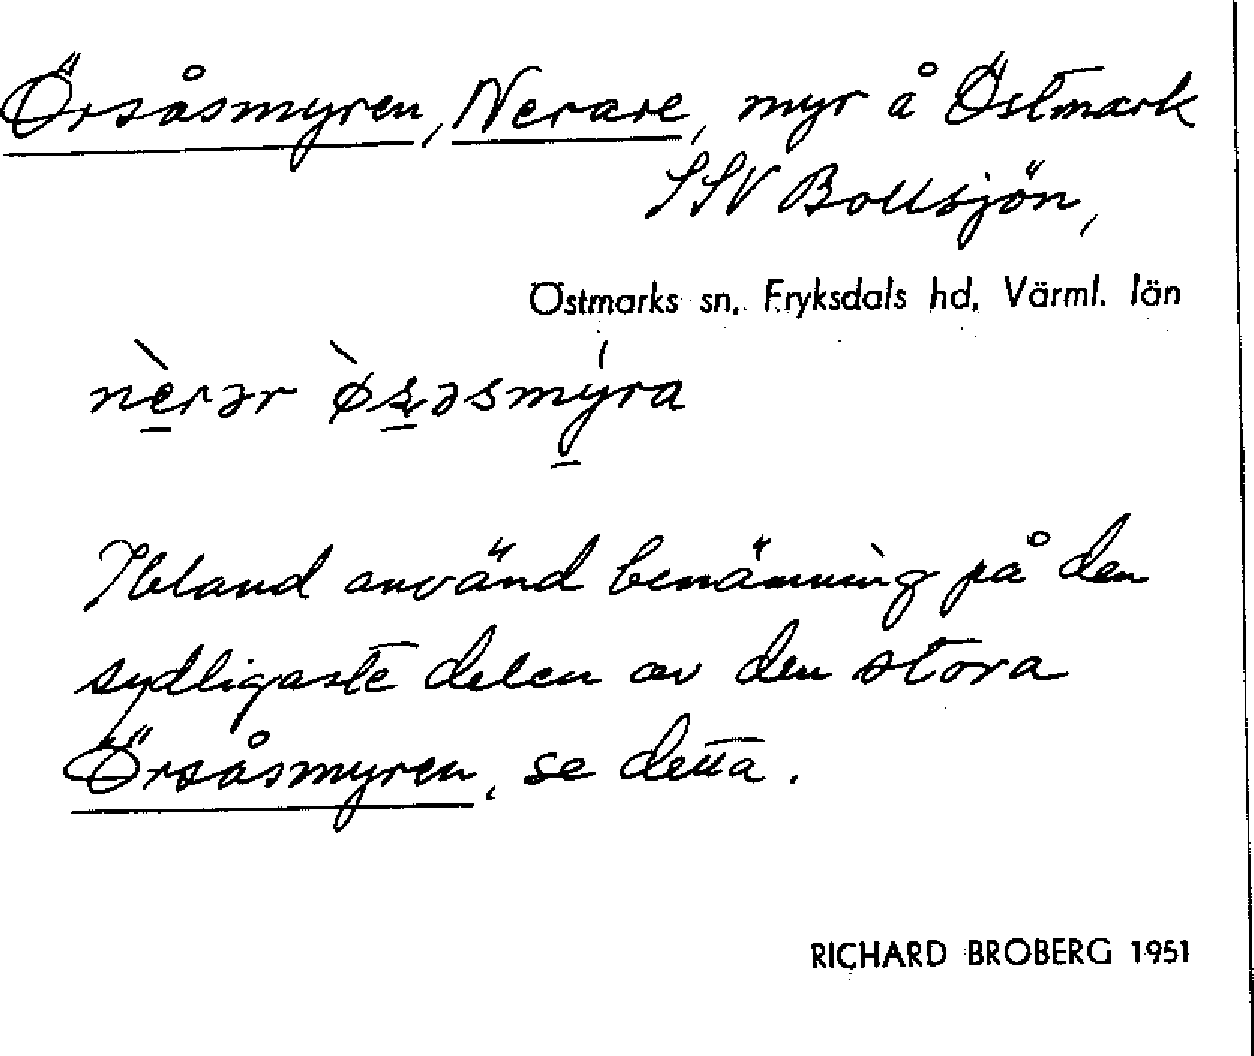 Örsåsmyren, Nerare, myr å Östmark
SSV Bollsjön,
Östmarks sn, Fryksdals hd, Värml. län
nèrər øs̱əsmýra
Ibland använd benämning på den
sydligaste delen av den stora
Örsåsmyren, se detta.
RICHARD BROBERG 1951